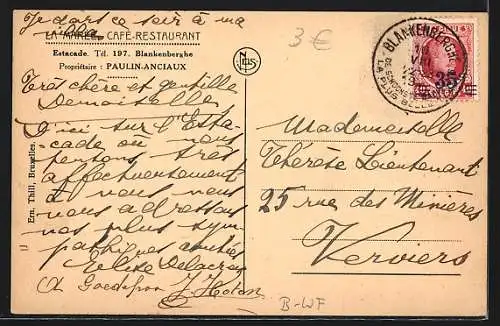 Je pars ce soir à ma
LA MARÉE, CAFÉ-RESTAURANT
Estacade. Tél. 197. Blankenberghe
Propriétaire : PAULIN-ANCIAUX
Très chère et gentille
Demoiselle,
D'ici sur l'Esta-
cade où nous
pensons très
affectueusement
à vous nous
vous adressons
nos plus sym-
pathiques amitiés
Elise Delacre
J. Hoton
Ern. Thill, Bruxelles.
Nels
3 €
BLANKENBERGHE
LA PLUS BELLE
35
Mademoiselle
Thérèse Lieutenant
25 rue des Minières
Verviers
B-WF